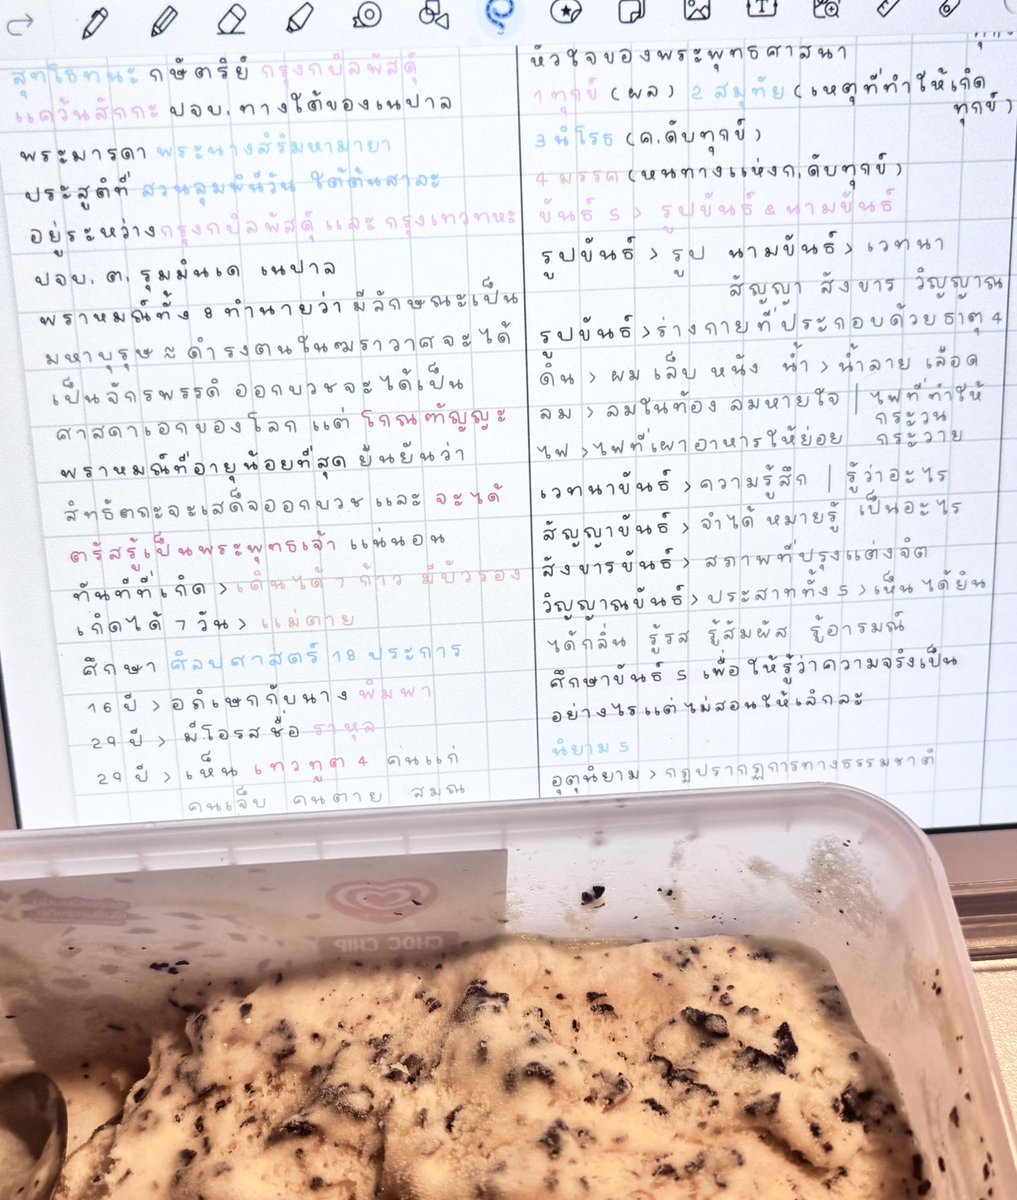 สุทโธทนะ กษัตริย์ กรุงกบิลพัสดุ์
แคว้นสักกะ ปจบ. ทางใต้ของเนปาล
พระมารดา พระนางสิริมหามายา
ประสูติที่ สวนลุมพินีวัน ใต้ต้นสาละ
อยู่ระหว่างกรุงกบิลพัสดุ์ และ กรุงเทวทหะ
ปจบ. ต. รุมมินเด เนปาล
พราหมณ์ทั้ง 8 ทำนายว่า มีลักษณะเป็น
มหาบุรุษ ดำรงตนในฆราวาสจะได้
เป็นจักรพรรดิ ออกบวชจะได้เป็น
ศาสดาเอกของโลก แต่ โกณฑัญญะ
พราหมณ์ที่อายุน้อยที่สุด ยืนยันว่า
สิทธัตถะจะเสด็จออกบวช และ จะได้
ตรัสรู้เป็นพระพุทธเจ้า แน่นอน
ทันทีที่เกิด > เดินได้ 7 ก้าว มีบัวรอง
เกิดได้ 7 วัน > แม่ตาย
ศึกษา ศิลปศาสตร์ 18 ประการ
16 ปี > อภิเษกกับนาง พิมพา
29 ปี > มีโอรส ชื่อ ราหุล
29 ปี > เห็น เทวทูต 4 คนแก่
คนเจ็บ คนตาย สมณ
หัวใจของพระพุทธศาสนา
1 ทุกข์ (ผล) 2 สมุทัย (เหตุที่ทำให้เกิด
ทุกข์)
3 นิโรธ (ค.ดับทุกข์)
4 มรรค (หนทางแห่งก.ดับทุกข์)
ขันธ์ 5 > รูปขันธ์ & นามขันธ์
รูปขันธ์ > รูป นามขันธ์ > เวทนา
สัญญา สังขาร วิญญาณ
รูปขันธ์ > ร่างกายที่ประกอบด้วยธาตุ 4
ดิน > ผม เล็บ หนัง น้ำ > น้ำลาย เลือด
ลม > ลมในท้อง ลมหายใจ | ไฟที่ทำให้
ไฟ > ไฟที่เผาอาหารให้ย่อย กระวน
กระวาย
เวทนาขันธ์ > ความรู้สึก | รู้ว่าอะไร
สัญญาขันธ์ > จำได้ หมายรู้ เป็นอะไร
สังขารขันธ์ > สภาพที่ปรุงแต่งจิต
วิญญาณขันธ์ > ประสาททั้ง 5 > เห็น ได้ยิน
ได้กลิ่น รู้รส รู้สัมผัส รู้อารมณ์
ศึกษาขันธ์ 5 เพื่อให้รู้ว่าความจริงเป็น
อย่างไรแต่ไม่สอนให้เลิกละ
นิยาม 5
อุตุนิยาม > กฎปรากฏการทางธรรมชาติ
CHOC CHIP